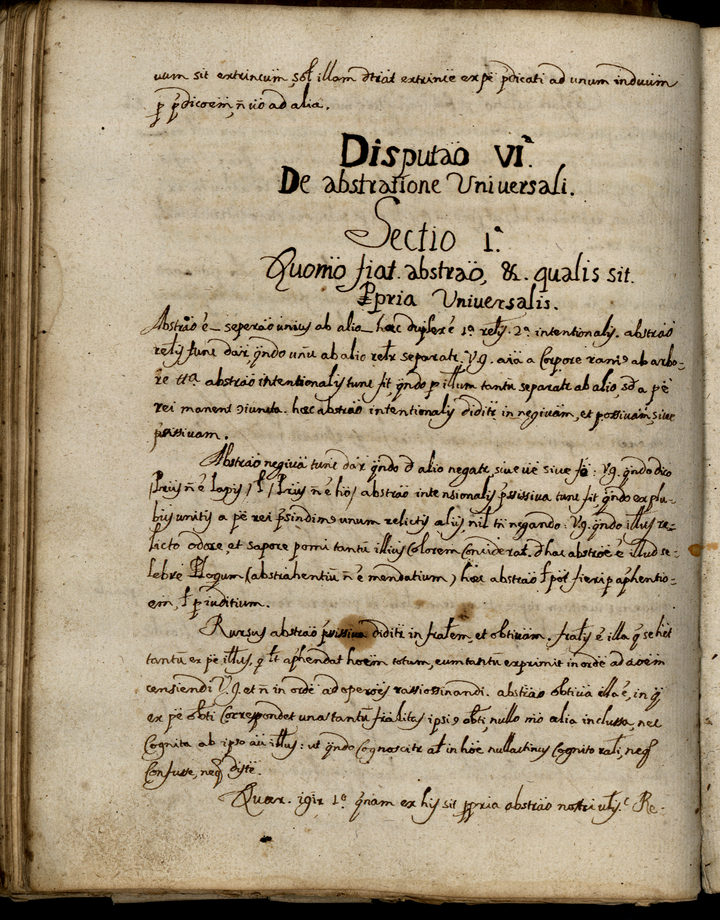 uum sit extrincum, sol illam dtrat extrince ex pe pdicati ad unum induum
p pdicoem, n uo ad alia.
Disputao VIa.
De abstratione Universali.
Sectio 1a.
Quomo fiat abstrao, &. qualis sit
Ppria Universalis.
Abstrao e seperao unius ab alio hæc duplex e 1a relis. 2a intentionalis. abstrao
relis tunc dar, qndo unu ab alio relr separatr. V.g. aia a Corpore ramus ab arbo-
re tta abstrao intentionalis tunc fit, qndo p illum tantu separatr ab alio, sd a pe
rei manent coniuncta. hæc abstrao intentionalis diditr in negiuam, et possiuam, siue
pssiuam.
Abstrao negiua tunc dar qndo d alio negatr, siue ue siue fo: Vg. qndo dico
Prus n e lapis, l Prus n e ho abstrao intensionalis pssiua tunc fit, qndo ex plu-
bus unitis a pe rei psindimus unum relictis aliis nil tn negando: Vg. qndo illus re-
licto odore, et sapore pomi tantu illius Colorem Considerat. d hac abstroe e illud se-
lebre Plogum (abstrahentiu n e mendatium) hæc abstrao l pot fieri p aphentio-
em, l p iuditium.
Rursus abstrao pssiua diditr in fralem, et obtiuam. fralis e illa q se het
tantu ex pe illus, q lt aphendat hoem totum, eum tantu exprimit in orde ad aoem
censiendi V.g. et n in orde ad operoes rassiossinandi. abstrao obtiua illa e, in q
ex pe obti Correspondet una tantu fralitas ipsius obti, nullo mo alia inclussa, nec
Cognita ab ipso au illus: ut qndo Cognoscitr al in hoe nullactinus Cognito rali, neq
Confusse, neq diste.
Quær. igir 1o. qnam ex his sit ppria abstrao nostri ulis. Re-